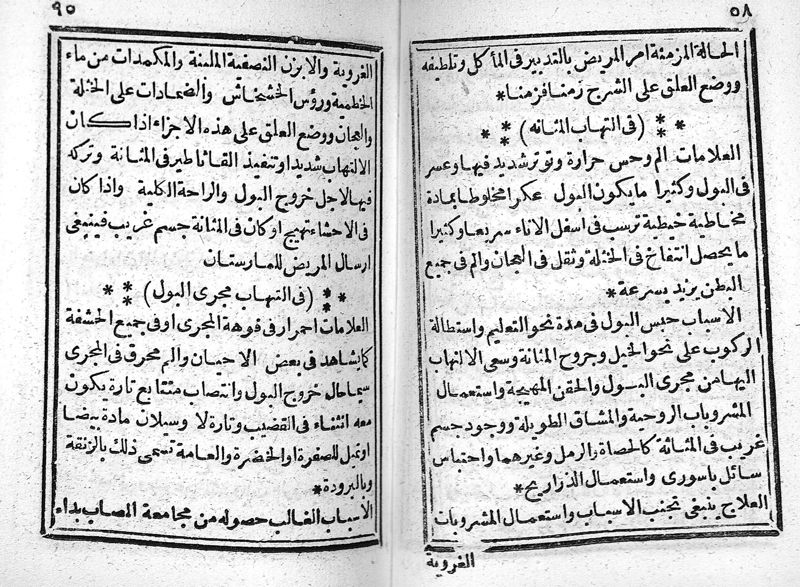 ٥٨
الحالة المزمنة امر المريض بالتدبير فى المأكل وتلطيفه
ووضع العلق على الشرج زمنا فزمنا*
** (فى التهاب المثانه) **
العلامات الم وحس حرارة وتوتر شديد فيها وعسر
فى البول وكثيرا ما يكون البول عكرا مخلوطا بمادة
مخاطية خيطية ترسب فى أسفل الاناء سريعا وكثيرا
ما يحصل انتفاخ فى الخثلة وثقل فى العجان والم فى جميع
البطن يزيد بسرعة*
الاسباب حبس البول فى مدة نحو التعليم واستطالة
الركوب على نحو الخيل وجروح المثانة وسعى الالتهاب
اليها من مجرى البول والحقن المهيجة واستعمال
المشروبات الروحية والمشاق الطويلة ووجود جسم
غريب فى المثانة كالحصاة والرمل وغيرهما واحتباس
سائل باسورى واستعمال الذراريح*
العلاج ينبغى تجنب الاسباب واستعمال المشروبات
الغروية
٩٥
الغروية والابزن النصفية الملينة والمكمدات من ماء
الخطمية ورؤس الخشخاش والضمادات على الخثلة
والعجان ووضع العلق على هذه الاجزاء اذا كان
الالتهاب شديدا وتنفيذ القاثاطير فى المثانة وتركه
فيها لاجل خروج البول والراحة الكلية واذا كان
فى الاحشاء تهيج او كان فى المثانة جسم غريب فينبغى
ارسال المريض للمارستان
** (فى التهاب مجرى البول) **
العلامات احمرار فى فوهة المجرى او فى جميع الحشفة
كما يشاهد فى بعض الاحيان والم محرق فى المجرى
سيما حال خروج البول وانتصاب متتابع تارة يكون
معه انثناء فى القضيب وتارة لا وسيلان مادة بيضا
او تميل للصفرة او الخضرة والعامة تسمى ذلك بالزنقة
وبالبرودة*
الأسباب الغالب حصوله من مجامعة المصاب بداء